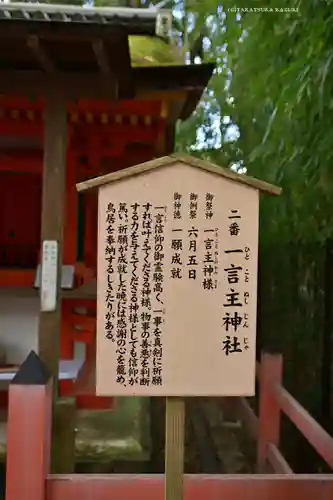 (C)TARATSURA RAZURI
二番 一言主神社
ひとことぬしじんじゃ
御祭神 一言主神様
御例祭 六月五日
御神徳 一願成就
一言信仰の御霊験高く、一事を真剣に祈願
すれば叶えてくださる神様、物事の善悪を判断
する力を与えてくださる神様としても信仰が
篤い。祈願が成就した暁には感謝の心を籠め、
鳥居を奉納するしきたりがある。